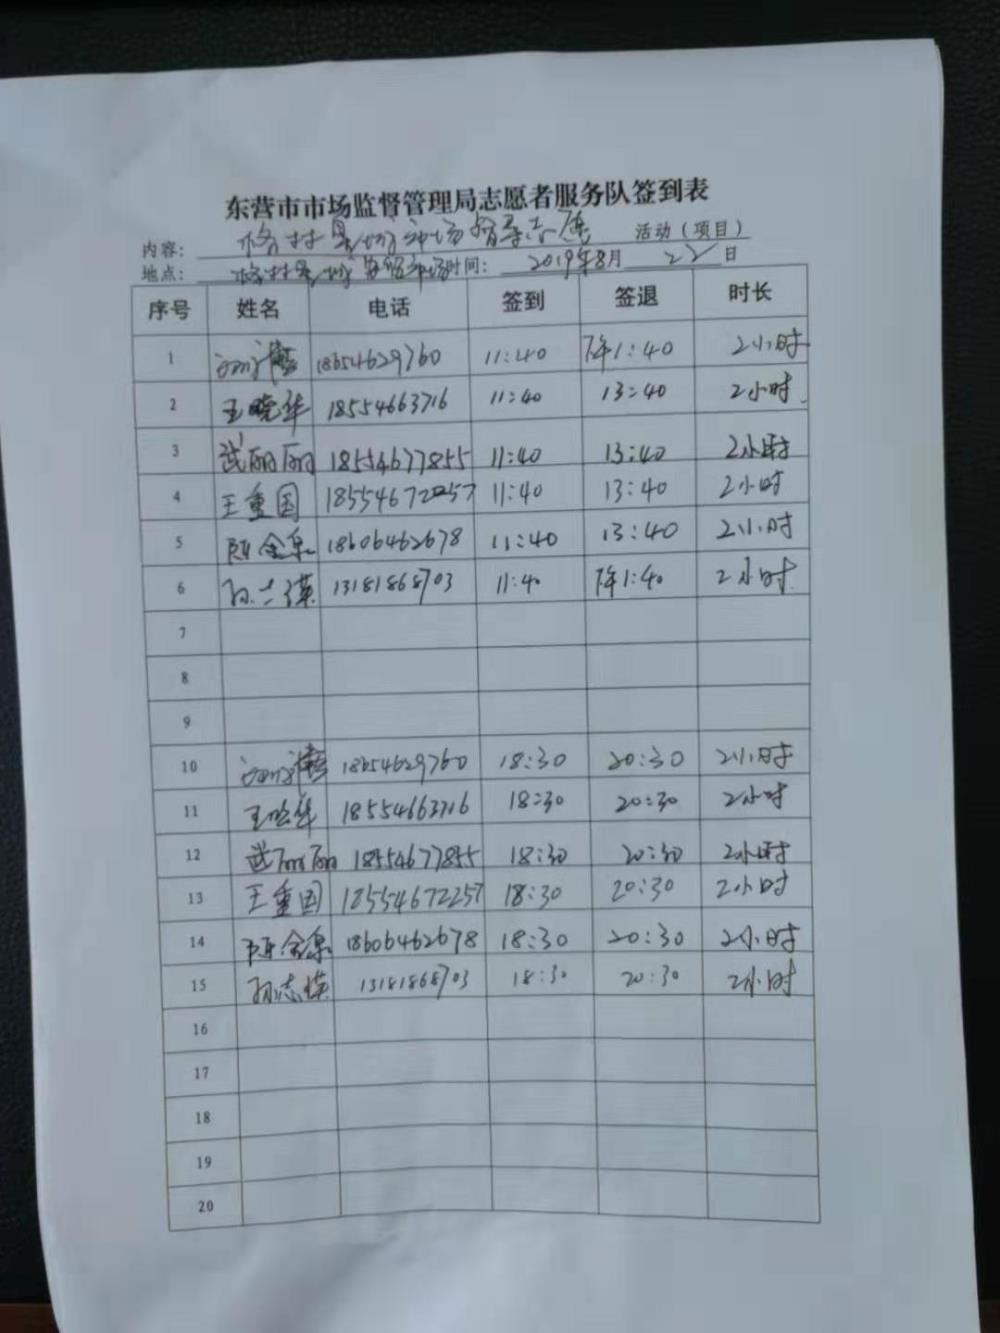 东营市市场监督管理局志愿者服务队签到表
内容： 市场督导志愿 活动（项目）
地点： 市场 时间： 2019年8月 22 日
序号 姓名 电话 签到 签退 时长
1 18654629760 11:40 下午1:40 2小时
2 王晓华 18554663716 11:40 13:40 2小时
3 武丽丽 18554677855 11:40 13:40 2小时
4 王重国 18554672257 11:40 13:40 2小时
5 陈金泉 18606462678 11:40 13:40 2小时
6 13181868703 11:40 下午1:40 2小时
7
8
9
10 18654629760 18:30 20:30 2小时
11 王晓华 18554663716 18:30 20:30 2小时
12 武丽丽 18554677855 18:30 20:30 2小时
13 王重国 18554672257 18:30 20:30 2小时
14 陈金泉 18606462678 18:30 20:30 2小时
15 孙志 13181868703 18:30 20:30 2小时
16
17
18
19
20